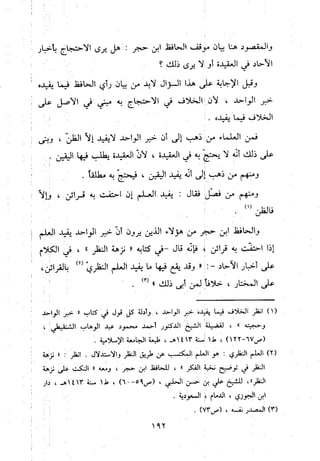 والمقصود هنا بيان موقف الحافظ ابن حجر : هل يرى الاحتجاج بأخبار
الآحاد في العقيدة أو لا يرى ذلك ؟
وقبل الإجابة على هذا السؤال لابد من بيان رأي الحافظ فيما يفيده
خبر الواحد ، لأن الاختلاف في الاحتجاج به مبني في الأصل على
الاختلاف فيما يفيده .
فمن العلماء من ذهب إلى أن خبر الواحد لا يفيد إلا الظن ، وبنى
على ذلك أنه لا يحتج به في العقيدة ، لأن العقيدة يطلب فيها اليقين .
ومنهم من ذهب إلى أنه يفيد اليقين ، فيحتج به مطلقا .
ومنهم من فصل فقال : يفيد العلم إن احتفت به قرائن ، وإلا
فالظن (١) .
والحافظ ابن حجر من هؤلاء الذين يرون أن خبر الواحد يفيد العلم
إذا احتفت به القرائن ، فإنه قال - في كتابه « نزهة النظر » ، في الكلام
على أخبار الآحاد - : « وقد يقع فيها ما يفيد العلم النظري (٢) بالقرائن ،
على المختار ، خلافا لمن أبى ذلك » (٣) .
(١) انظر الاختلاف فيما يفيده خبر الواحد ، وأدلة كل قول في كتاب « خبر الواحد
وحجيته » ، لفضيلة الشيخ الدكتور أحمد محمود عبد الوهاب الشنقيطي ،
(ص٦٧-١٢٢) ، ط١ سنة ١٤١٣هـ ، طبعة الجامعة الإسلامية .
(٢) العلم النظري : هو العلم المكتسب عن طريق النظر والاستدلال . انظر : « نزهة
النظر في توضيح نخبة الفكر » ، للحافظ ابن حجر ، ومعه « النكت على نزهة
النظر» ، للشيخ علي بن حسن الحلبي ، (ص٥٩-٦٠) ، ط١ سنة ١٤١٣هـ ، دار
ابن الجوزي ، الدمام ، السعودية .
(٣) المصدر نفسه ، (ص٧٣) .
١٩٢